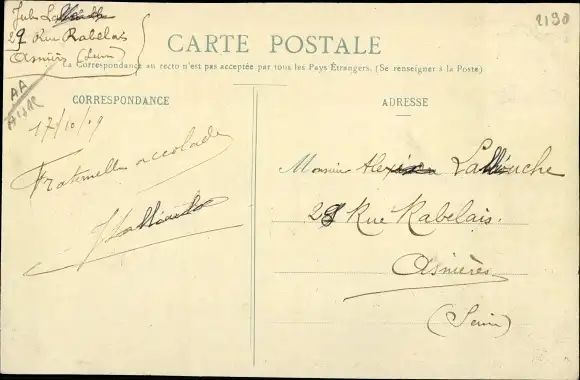 Jules
29 Rue Rabelais
Asnières (Seine)
2190
CARTE POSTALE
La Correspondance au recto n'est pas acceptée par tous les Pays Étrangers. (Se renseigner à la Poste)
CORRESPONDANCE
17/10/09
Fraternelle accolade
ADRESSE
Monsieur Lallouche
29 Rue Rabelais.
Asnières
(Seine)